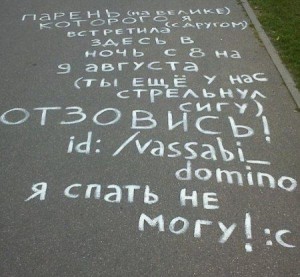 ПАРЕНЬ (НА ВЕЛИКЕ)
КОТОРОГО Я
(С ДРУГОМ)
ВСТРЕТИЛА
ЗДЕСЬ В
НОЧЬ С 8 НА
9 АВГУСТА
(ТЫ ЕЩЁ У НАС
СТРЕЛЬНУЛ
СИГУ)
ОТЗОВИСЬ!
id: /vassabi_
domino
Я СПАТЬ НЕ
МОГУ! :С